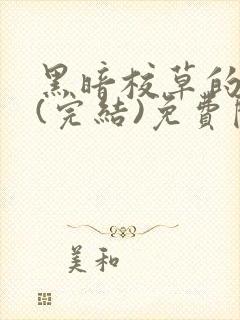 黑暗校草的
(完結)免費
美和